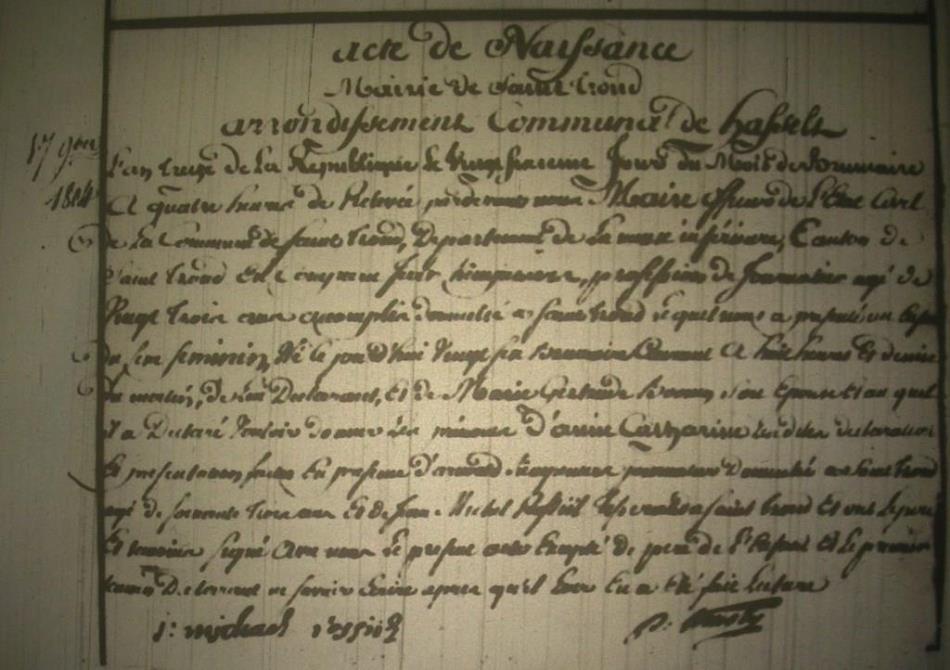 acte de Naissance
Mairie de Saint Trond
arrondissement Communal de hasselt
17 9bre
1804
L'an treize de la République le Vingt sixieme Jour du Mois de Brumaire
A quatre heures de Relevée pardevant nous Maire officier de l'Etat Civil
de la Commune de Saint Trond, Departement de la meuse inférieure, Canton de
Saint Trond Est Comparu profession de Journalier agé de
Vingt Trois ans accomplis domicilié a Saint Trond lequel nous a presenté un Enfant
du sexe feminin, Né le jourd'hui Vingt six Brumaire Courant A huit heures Et demie
du matin, de lui Declarant, Et de Marie Gertrude son Epouse Et au quel
il a Declaré Vouloir donner les prénoms d'anne Catharine les dites declaration
Et presentation faites En presence d'arnold domicilié a Saint Trond
agé de soixante Trois ans Et de Jean Michel a Saint Trond Et ont le pere
Et temoins signé avec nous le present acte Excepté de pere de l'Enfant Et le premier
temoin Declarant ne savoir Ecrire apres qu'il leur En a Eté fait lecture
j: michael